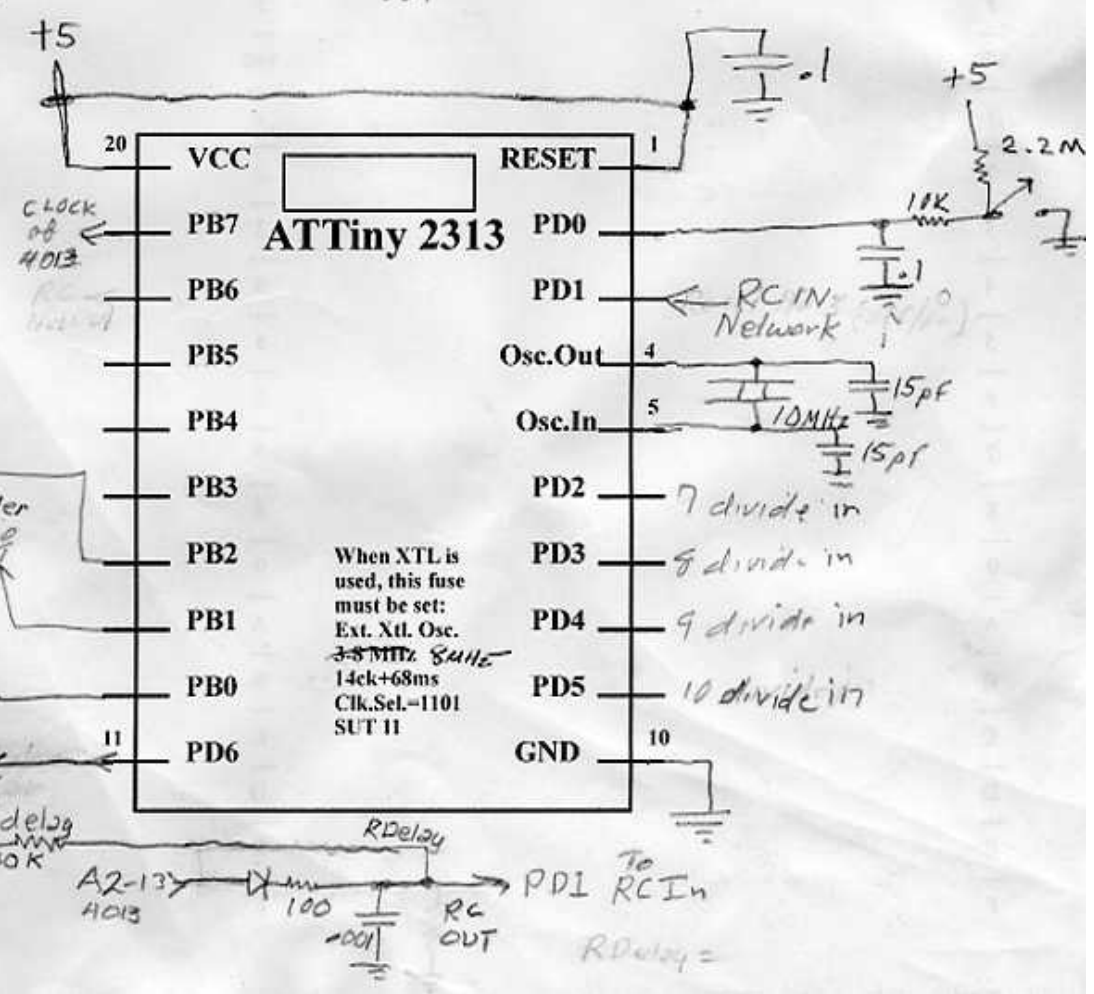 +5
.1
+5
2.2M
10K
.1
20 VCC
RESET 1
CLOCK
of
4013
PB7
ATTiny 2313
PD0
PB6
PD1
RC IN
Network
PB5
Osc.Out 4
15pf
PB4
Osc.In 5
10MHz
15pf
PB3
PD2 7 divide in
PB2
PD3 8 divide in
PB1
PD4 9 divide in
PB0
PD5 10 divide in
11 PD6
GND 10
When XTL is
used, this fuse
must be set:
Ext. Xtl. Osc.
3.8 MHz 8MHz
14ck+68ms
Clk.Sel.=1101
SUT 11
delay
RDelay
A2-13
4013
100
.001
RC
OUT
PD1 To RC In
RDelay =